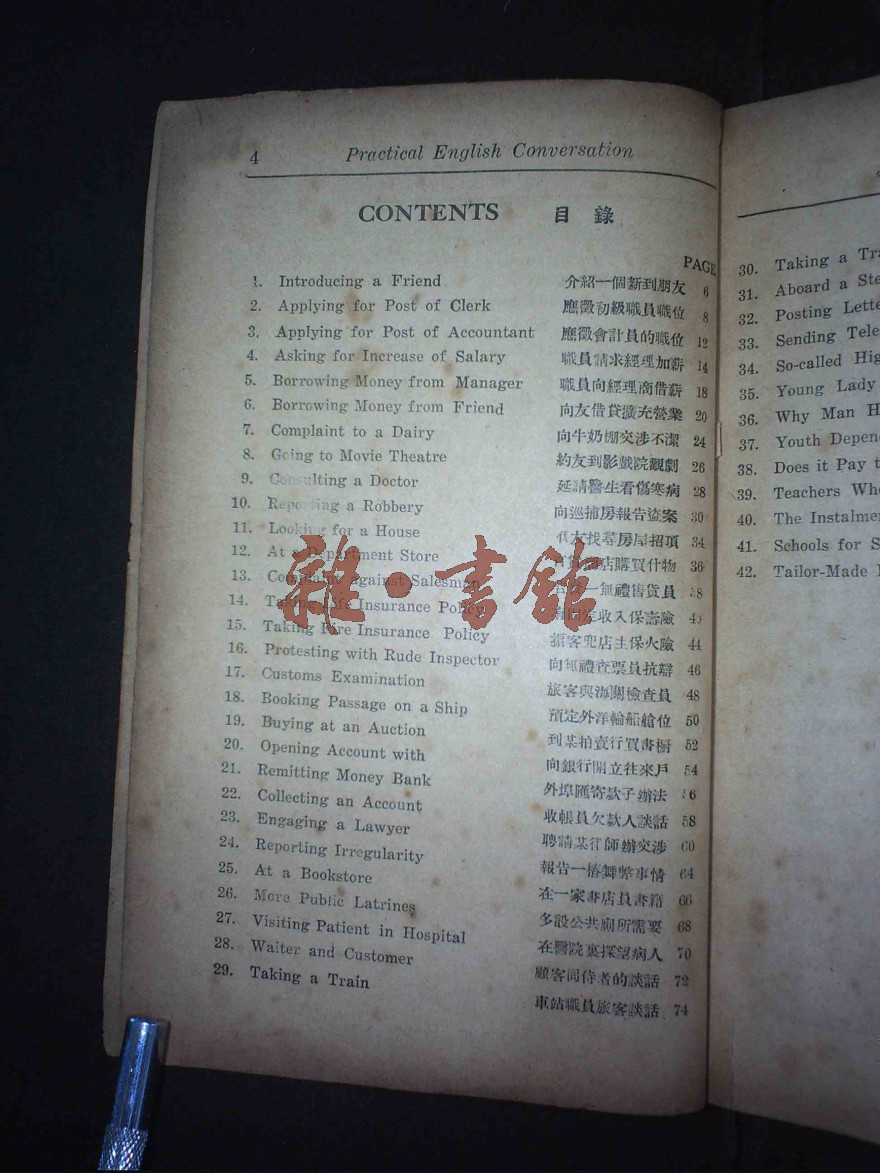 4 Practical English Conversation
CONTENTS 目錄
PAGE
1. Introducing a Friend 介紹一個新到朋友 6
2. Applying for Post of Clerk 應徵初級職員職位 8
3. Applying for Post of Accountant 應徵會計員的職位 12
4. Asking for Increase of Salary 職員請求經理加薪 14
5. Borrowing Money from Manager 職員向經理商借薪 18
6. Borrowing Money from Friend 向友借貸擴充營業 20
7. Complaint to a Dairy 向牛奶棚交涉不潔 24
8. Going to Movie Theatre 約友到影戲院觀劇 26
9. Consulting a Doctor 延請醫生看傷寒病 28
10. Reporting a Robbery 向巡捕房報告盜案 30
11. Looking for a House 友找尋房屋招頂 34
12. At a Department Store 店購買什物 36
13. Complaint against Salesman 一無禮售貨員 38
14. Taking Life Insurance Policy 收入保壽險 40
15. Taking Fire Insurance Policy 客兜店主保火險 44
16. Protesting with Rude Inspector 向無禮查票員抗辯 46
17. Customs Examination 旅客與海關檢查員 48
18. Booking Passage on a Ship 預定外洋輪船艙位 50
19. Buying at an Auction 到某拍賣行買書橱 52
20. Opening Account with 向銀行開立往來戶 54
21. Remitting Money Bank 外埠匯寄款子辦法 56
22. Collecting an Account 收帳員欠款人談話 58
23. Engaging a Lawyer 聘請某律師辦交涉 60
24. Reporting Irregularity 報告一樁舞弊事情 64
25. At a Bookstore 在一家書店員書籍 66
26. More Public Latrines 多設公共廁所需要 68
27. Visiting Patient in Hospital 在醫院裏探望病人 70
28. Waiter and Customer 顧客同侍者的談話 72
29. Taking a Train 車站職員旅客談話 74
30. Taking a Tra
31. Aboard a Ste
32. Posting Lette
33. Sending Tele
34. So-called Hig
35. Young Lady
36. Why Man H
37. Youth Depen
38. Does it Pay t
39. Teachers Wh
40. The Instalme
41. Schools for S
42. Tailor-Made
雜·書館